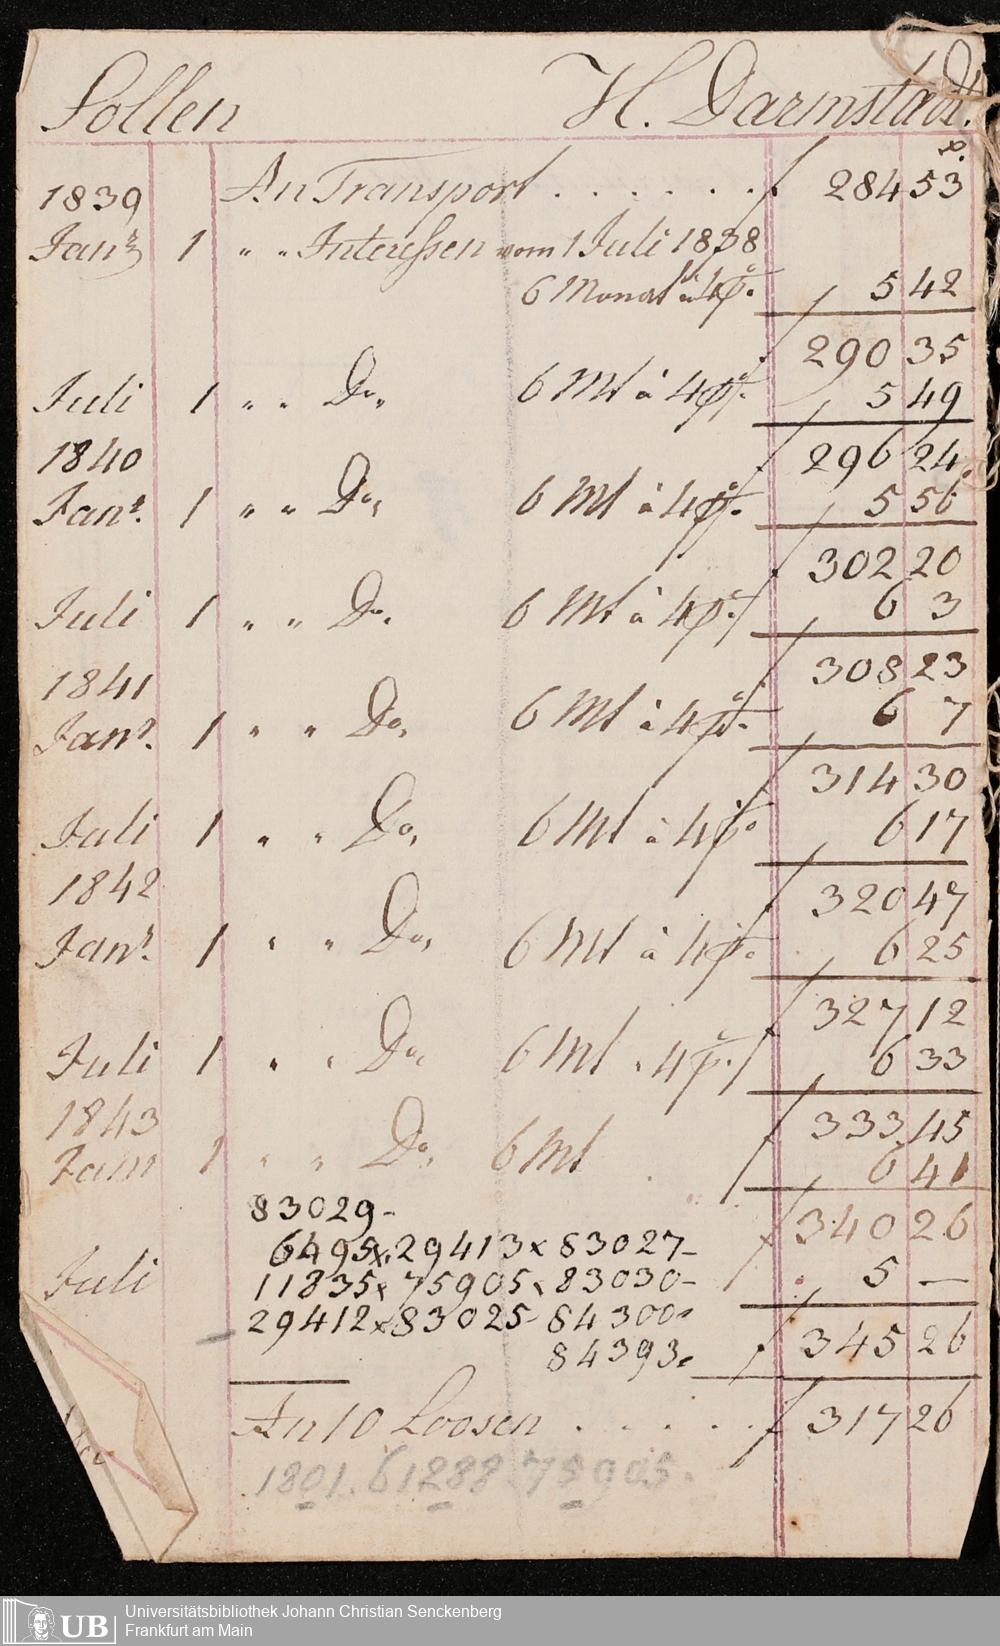 Sollen H. Darmstadt.
1839 An Transport . . . . . . f 284 53
Janr 1 " " Interessen vom 1 Juli 1838
6 Monat à 4 p. 5 42
290 35
Juli 1 " " Do, 6 Mt à 4 p. 5 49
1840 296 24
Janr. 1 " " Do, 6 Mt à 4 p. 5 56
302 20
Juli 1 " " Do. 6 Mt à 4 p. 6 3
1841 308 23
Janr. 1 " " Do, 6 Mt à 4 p. 6 7
314 30
Juli 1 " " Do, 6 Mt à 4 p. 6 17
1842 320 47
Janr. 1 " " Do, 6 Mt à 4 p. 6 25
327 12
Juli 1 " " Do 6 Mt " 4 p. 6 33
1843 333 45
Janr 1 " " Do, 6 Mt 6 41
83029- 340 26
6495x. 29413x 83027-
Juli 11835x 75905x 83030- 5 —
29412x 83025- 84300.
84393. f 345 26
An 10 Loosen . . . . . f 317 26
1801. 61288. 75905.
UB Universitätsbibliothek Johann Christian Senckenberg
Frankfurt am Main